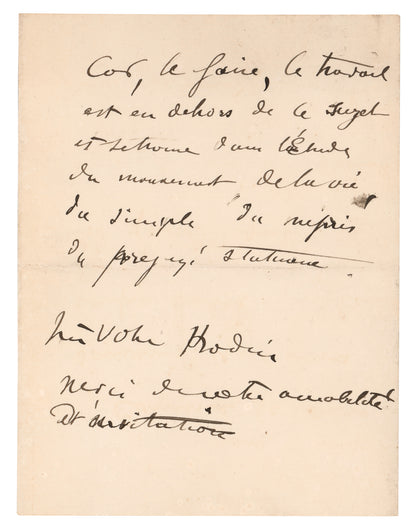 Car, le faire, le travail
est en dehors de le sujet
et se trouve dans l'Étude
du mouvement de la vie
du simple du mépris
du préjugé statuaire
Votre ARodin
merci de votre amabilité
et invitation